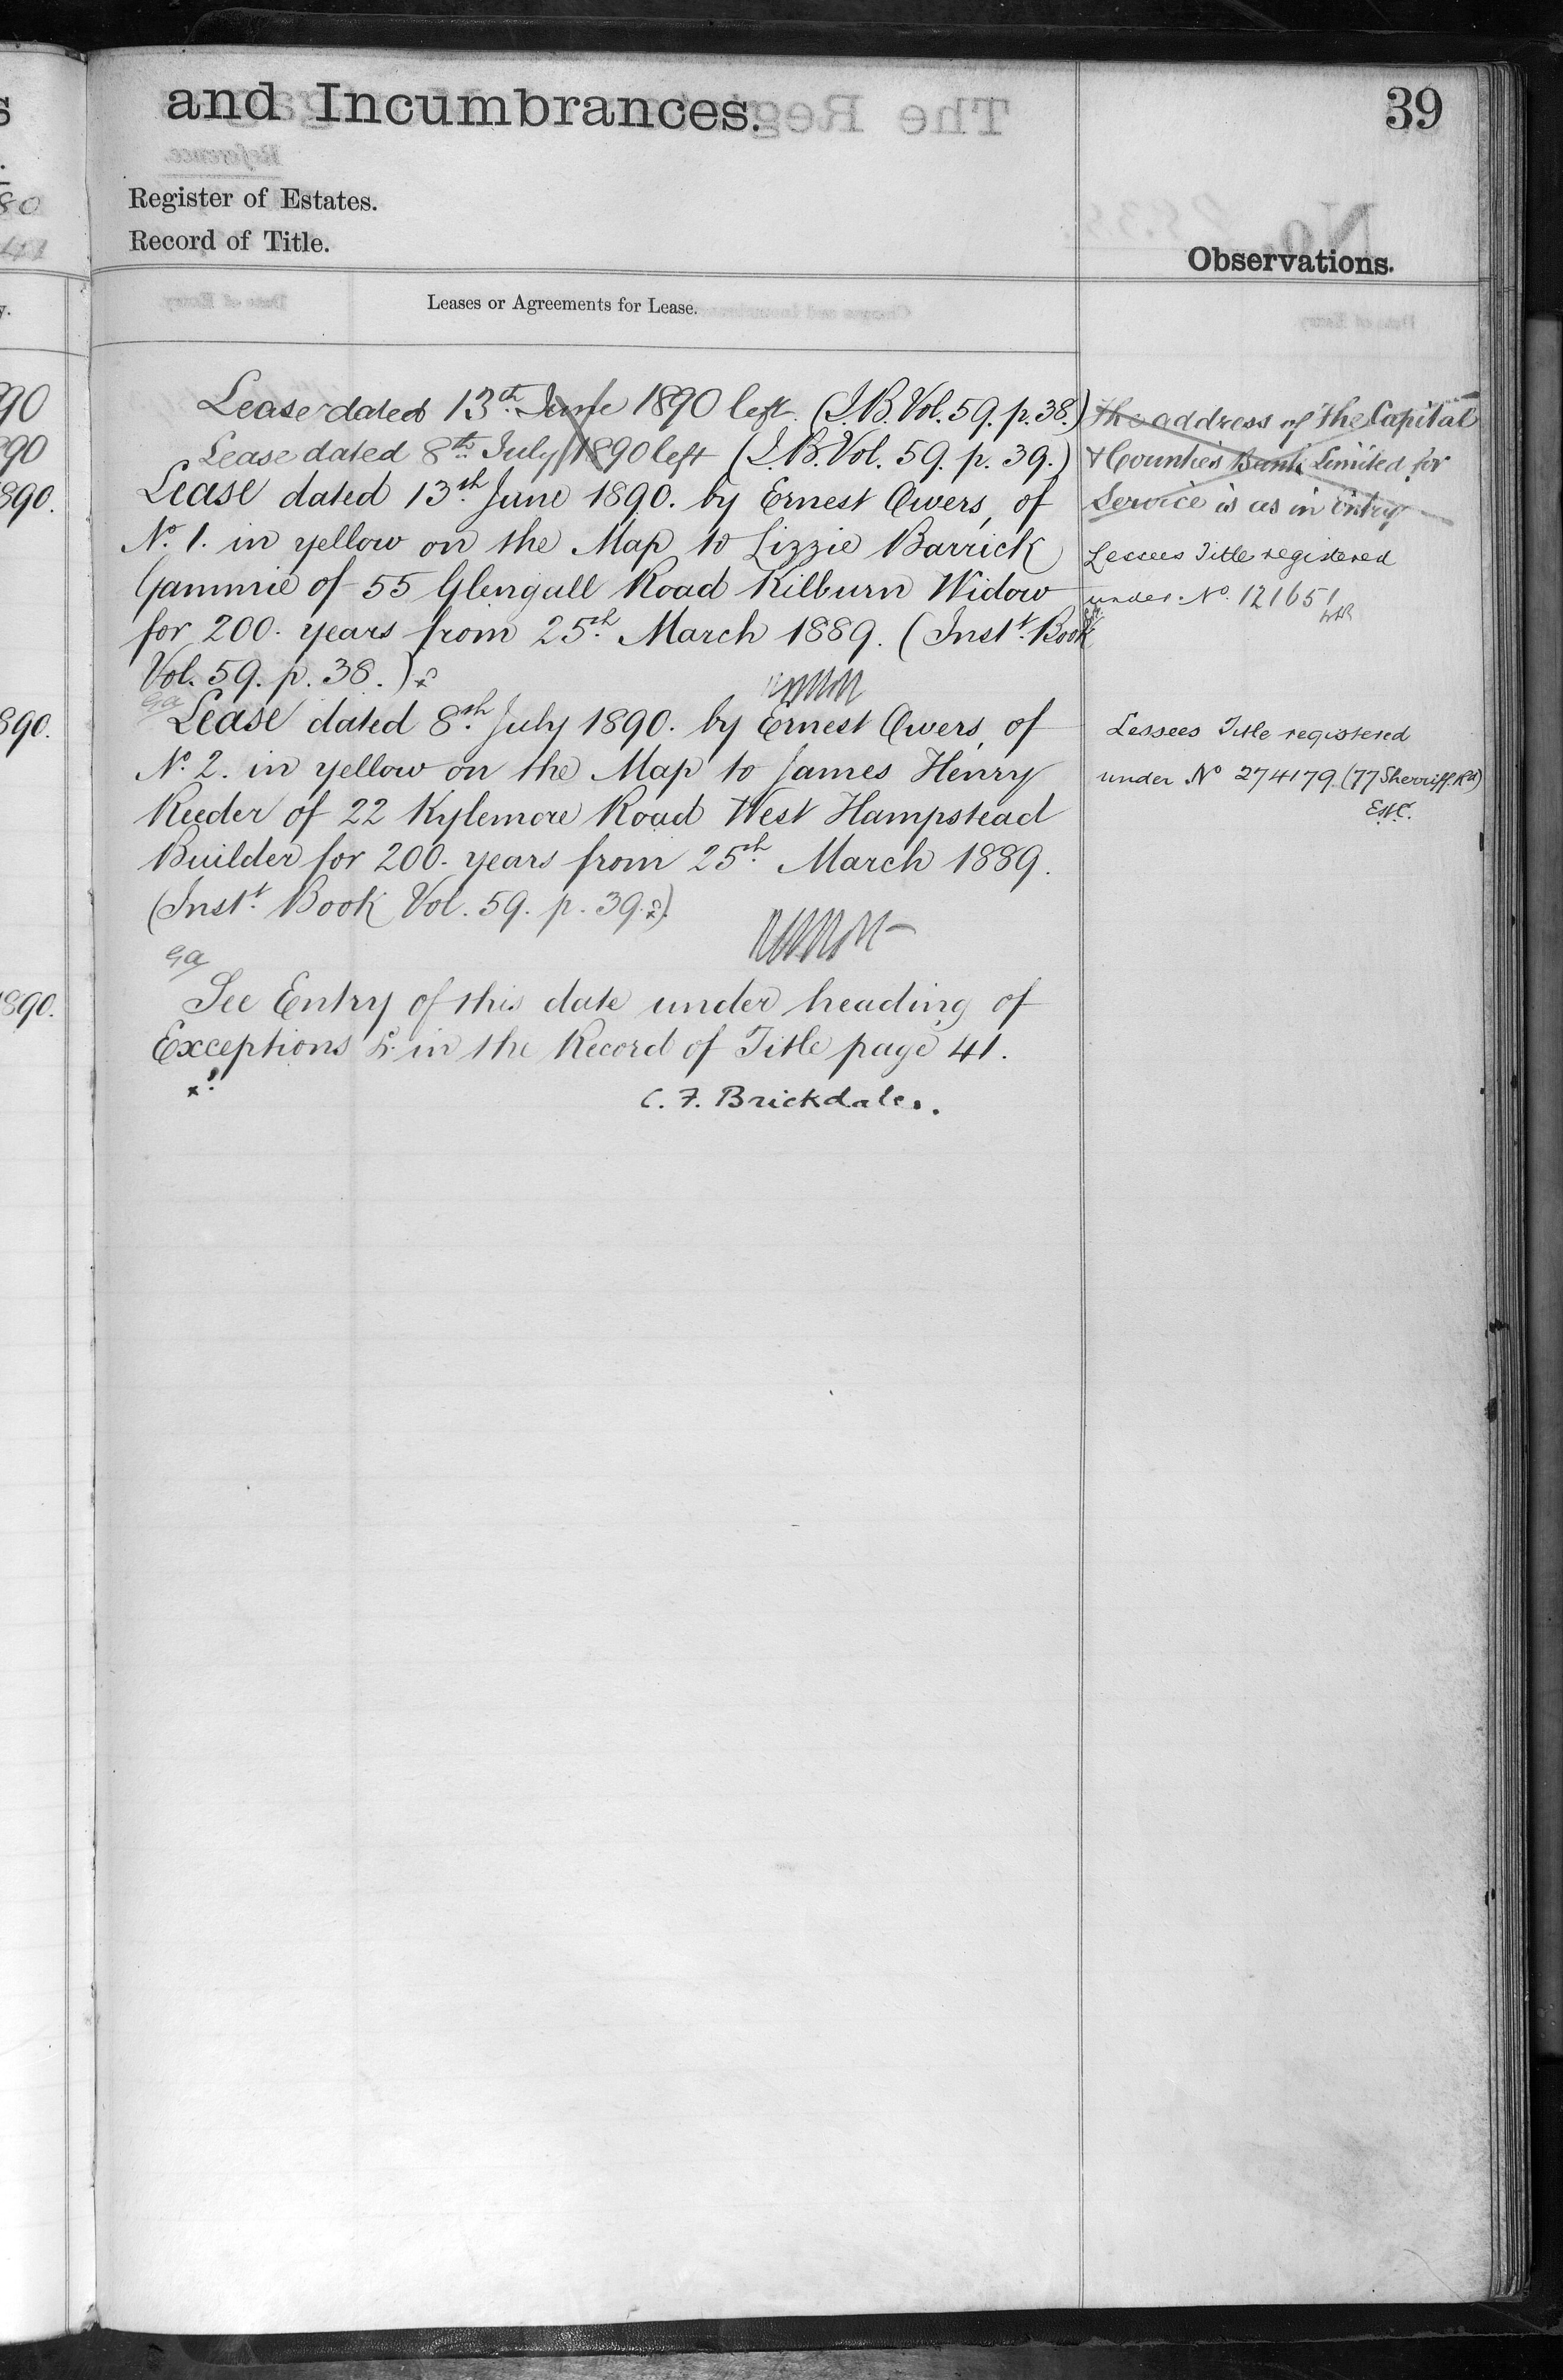 and Incumbrances.
39
Register of Estates.
Record of Title.
Observations.
Leases or Agreements for Lease.
Lease dated 13th. June 1890 left. (I.B. Vol. 59. p. 38.)
Lease dated 8th. July 1890 left (I.B. Vol. 59. p. 39.)
Lease dated 13th. June 1890. by Ernest Owers, of
No. 1. in yellow on the Map to Lizzie Barrick
Gammie of 55 Glengall Road Kilburn Widow
for 200. years from 25th. March 1889. (Instt. Book
Vol. 59. p. 38.)
Lease dated 8th. July 1890. by Ernest Owers, of
No. 2. in yellow on the Map to James Henry
Reeder of 22 Kylemore Road West Hampstead
Builder for 200. years from 25th. March 1889.
(Instt. Book Vol. 59. p. 39.)
GA
See Entry of this date under heading of
Exceptions &c in the Record of Title page 41.
C. F. Brickdale.
The address of the Capital
& Counties Bank Limited for
Service is as in Entry
Lessees Title registered
under No. 121651
Lessees Title registered
under No 274179. (77 Sherriff Rd)
E.W.C.
90
90
890.
890.
1890.